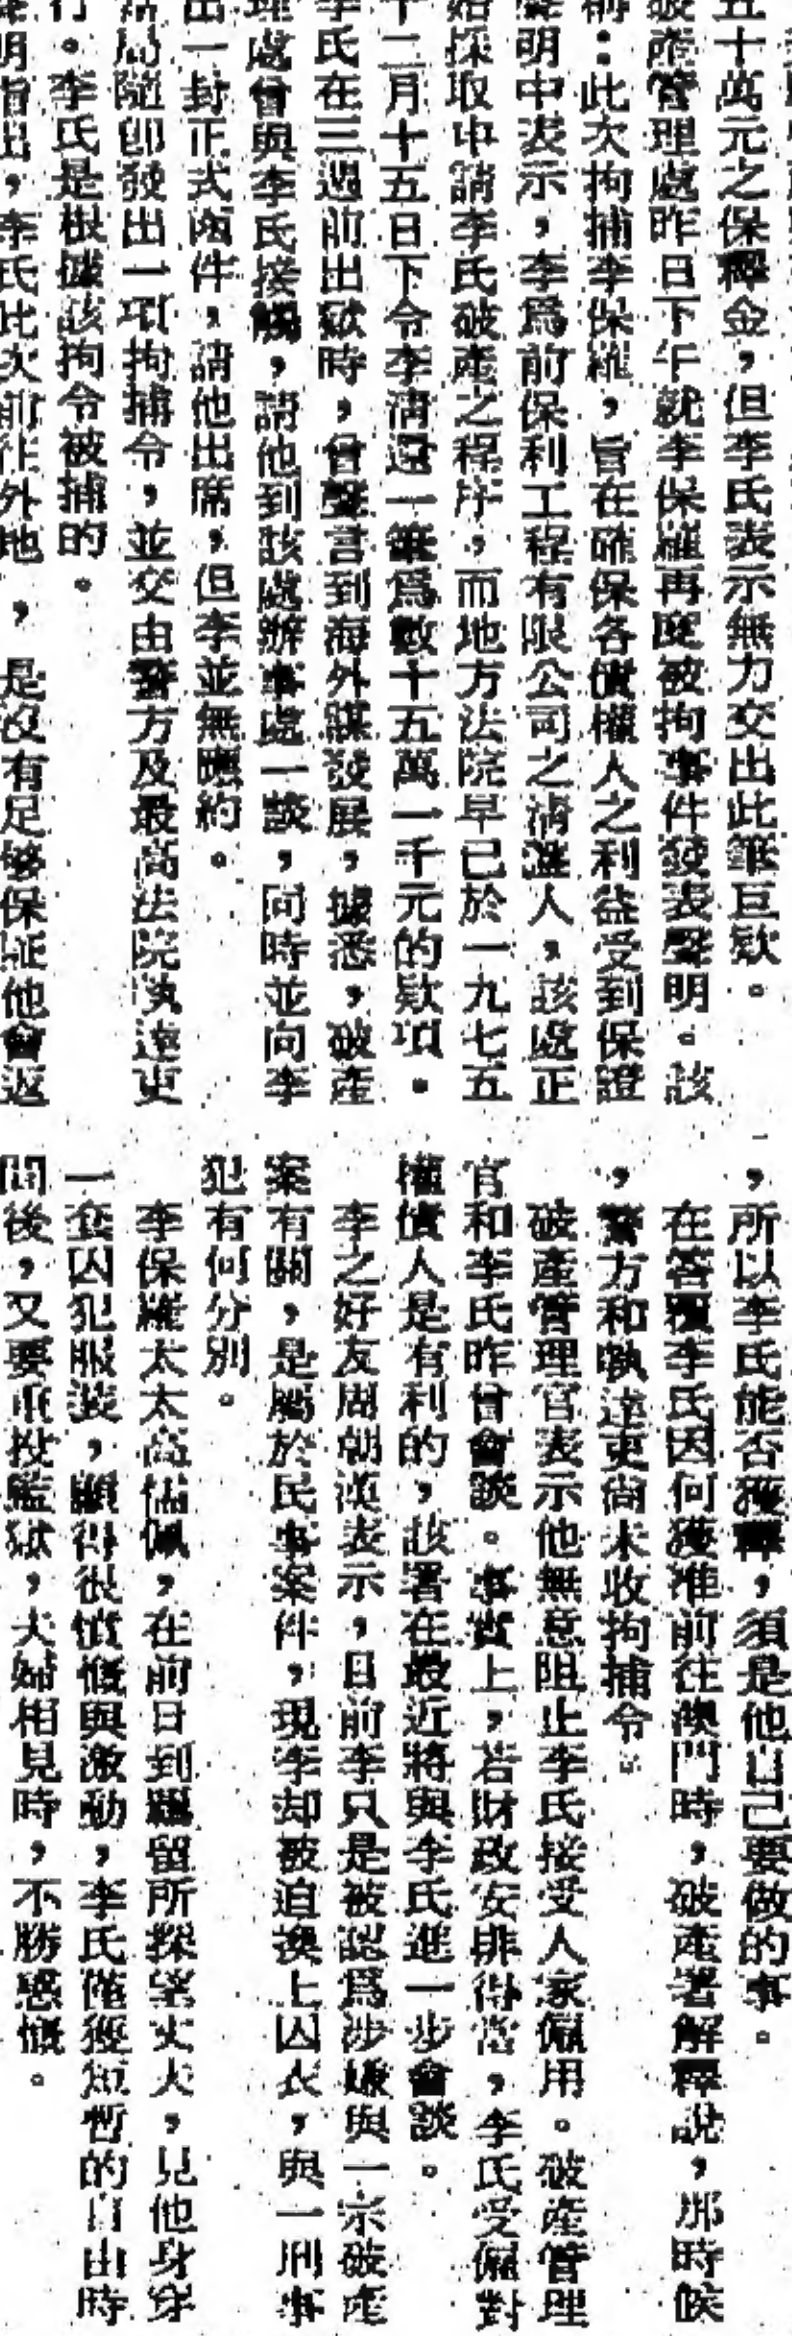 五十萬元之保釋金，但李氏表示無力交出此筆巨欵。
破產管理處昨日下午就李保羅再度被拘事件發表聲明。該
稱：此次拘捕李保羅，旨在確保各債權人之利益受到保證
聲明中表示，李爲前保利工程有限公司之清盤人，該處正
始採取申請李氏破產之程序，而地方法院早已於一九七五
十二月十五日下令李清還一筆爲數十五萬一千元的欵項。
李氏在三週前出獄時，曾聲言到海外謀發展，據悉，破產
理處曾與李氏接觸，請他到該處辦事處一談，同時並向李
出一封正式函件，請他出席，但李並無應約。
當局隨卽發出一項拘捕令，並交由警方及最高法院執達吏
行。李氏是根據該拘令被捕的。
聲明指出，李氏此次前往外地，是沒有足够保証他會返
，所以李氏能否獲釋，須是他自己要做的事。
在答覆李氏因何獲准前往澳門時，破產署解釋說，那時候
，警方和執達吏尚未收拘捕令。
破產管理官表示他無意阻止李氏接受人家僱用。破產管理
官和李氏昨曾會談。事實上，若財政安排得當，李氏受僱對
權債人是有利的，該署在最近將與李氏進一步會談。
李之好友周朝漢表示，日前李只是被認爲涉嫌與一宗破產
案有關，是屬於民事案件，現李却被迫換上囚衣，與一刑事
犯有何分別。
李保羅太太高儒佩，在前日到羈留所探望丈夫，見他身穿
一套囚犯服裝，顯得很憤慨與激動，李氏僅獲短暫的自由時
間後，又要重投監獄，夫婦相見時，不勝感慨。